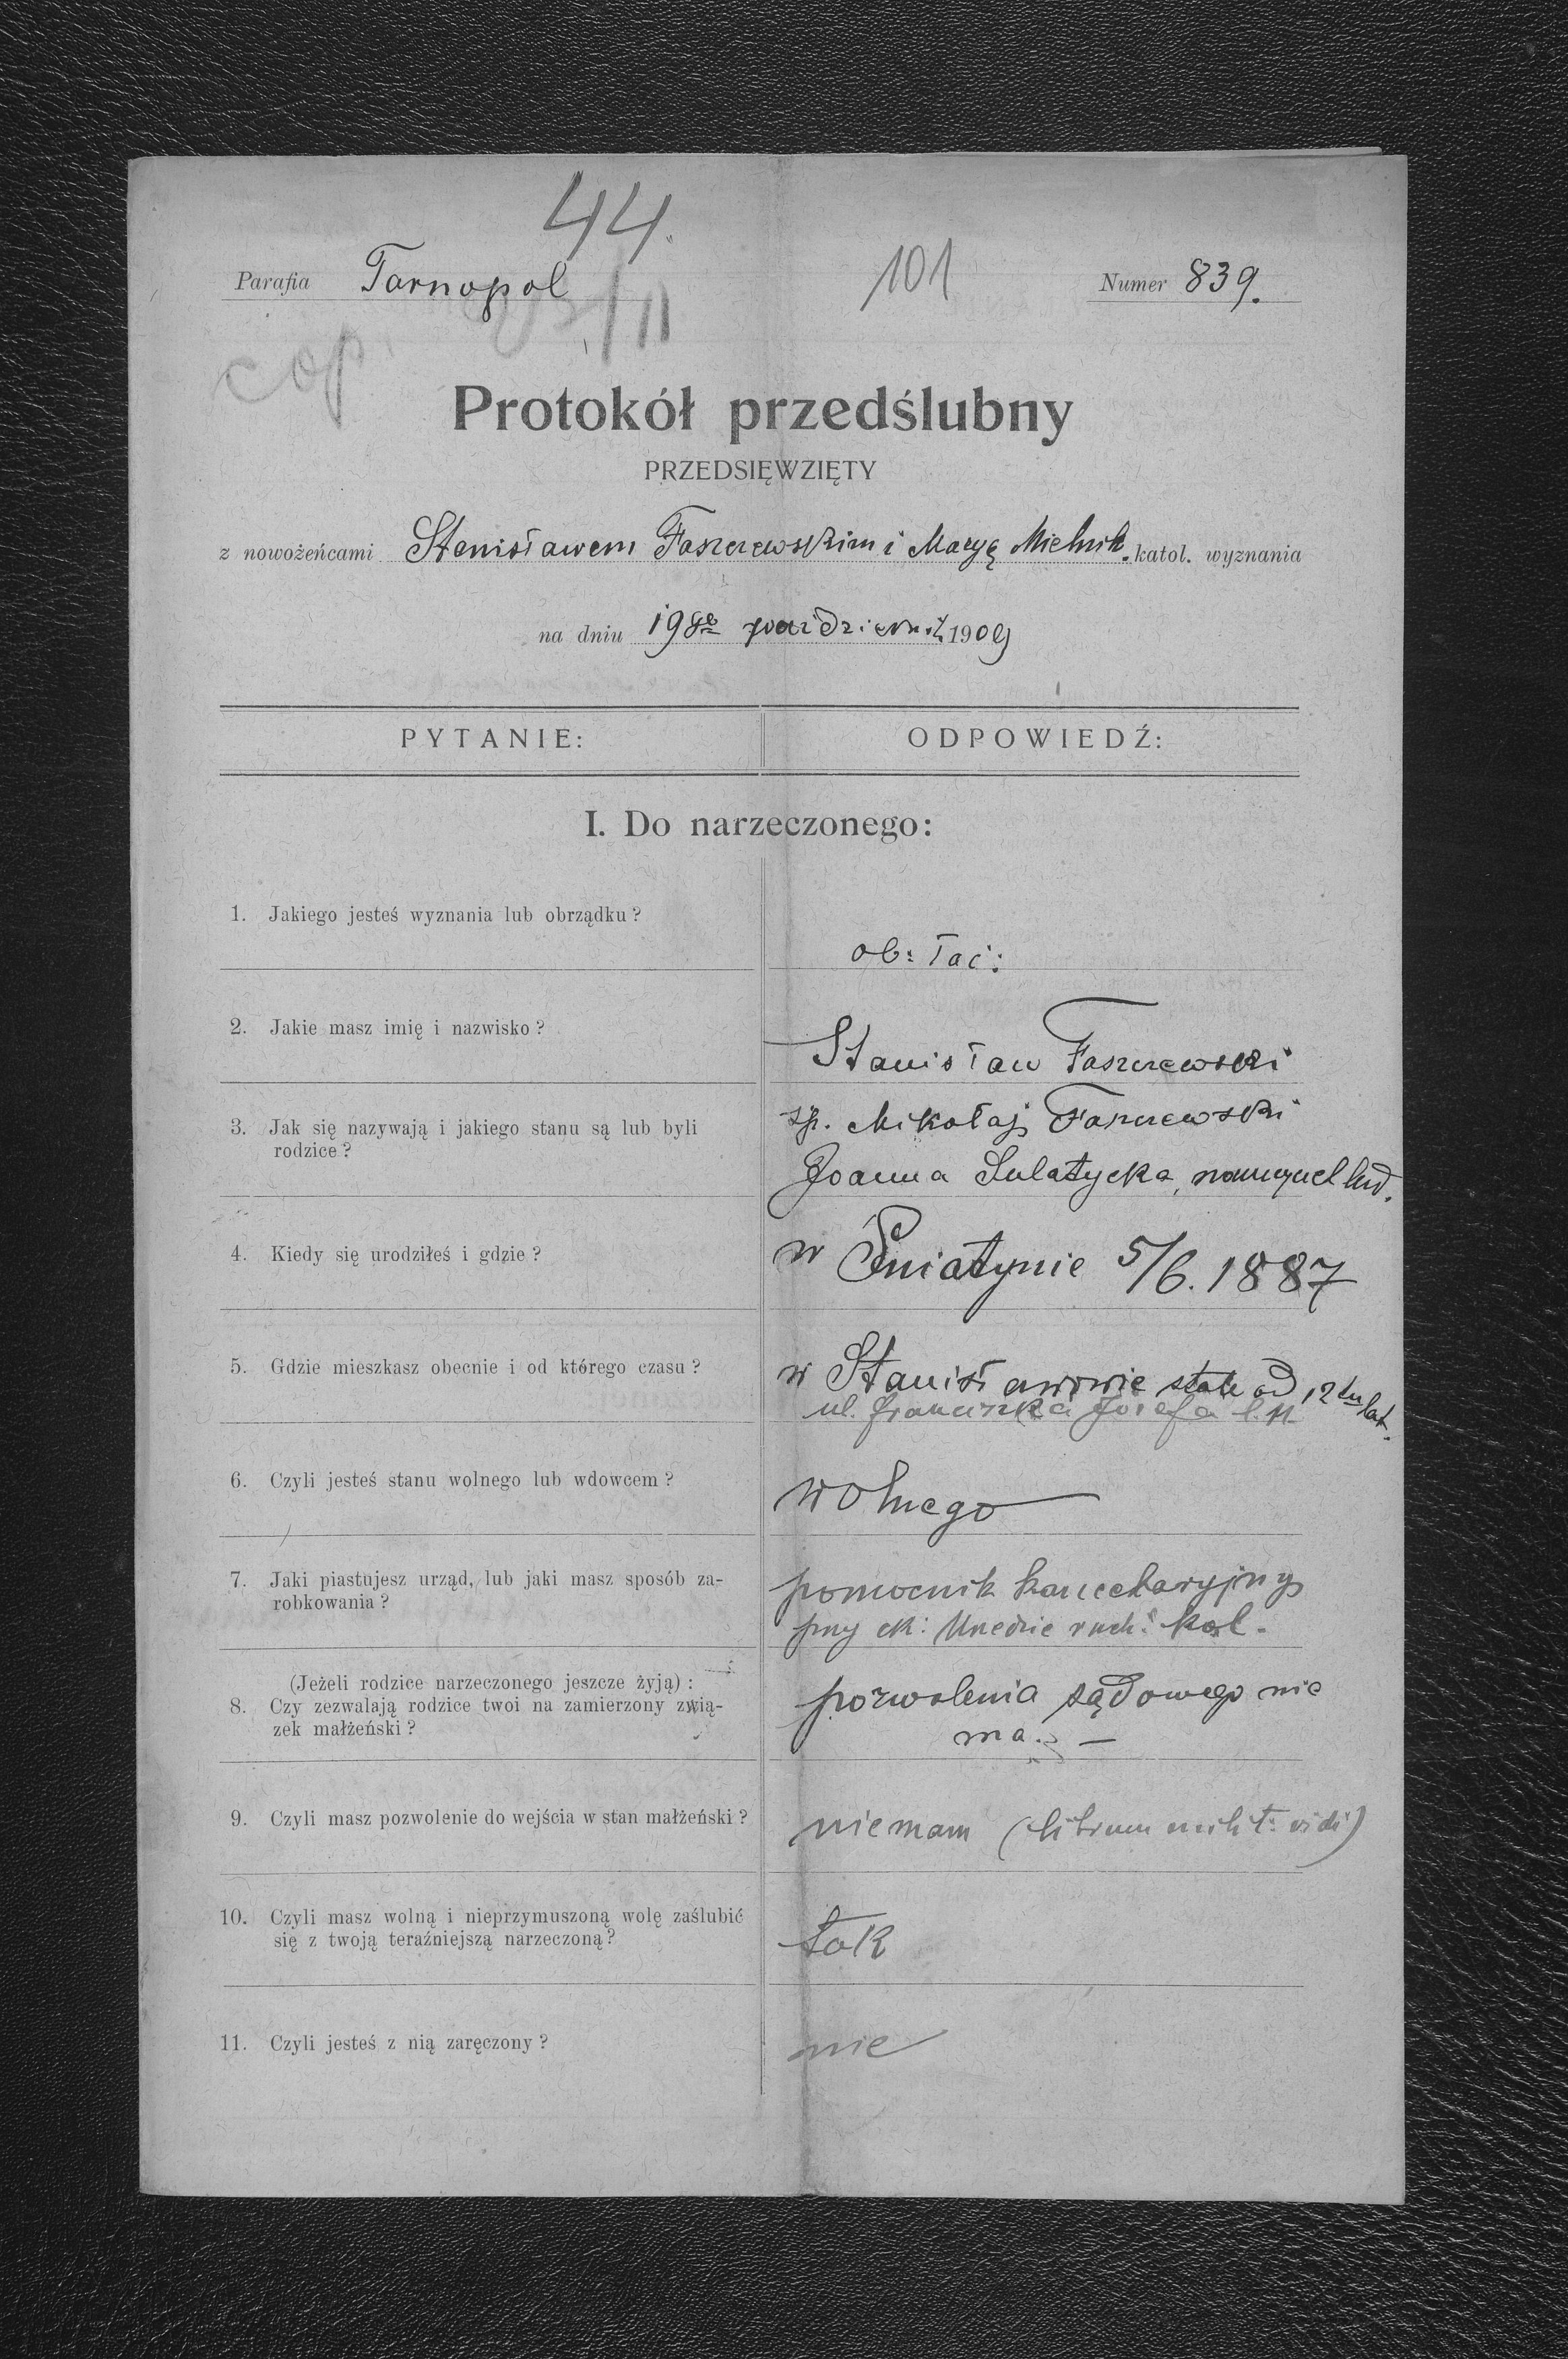 44.
Parafia Tarnopol 101 Numer 839.
cop. /II
Protokół przedślubny
PRZEDSIĘWZIĘTY
z nowożeńcami Stanisławem Faszczewskim i Maryą Mielnik. katol. wyznania
na dniu 19go październ. 1909
PYTANIE: ODPOWIEDŹ:
I. Do narzeczonego:
1. Jakiego jesteś wyznania lub obrządku?
ob: łać:
2. Jakie masz imię i nazwisko?
Stanisław Faszczewski
3. Jak się nazywają i jakiego stanu są lub byli
rodzice?
śp. Mikołaj Faszczewski
Joanna Sulatycka,
4. Kiedy się urodziłeś i gdzie?
w Śniatynie 5/6. 1887
5. Gdzie mieszkasz obecnie i od którego czasu?
w Stanisławowie stale od 12tu lat.
ul. Franciszka Józefa l.
6. Czyli jesteś stanu wolnego lub wdowcem?
wolnego
7. Jaki piastujesz urząd, lub jaki masz sposób za-
robkowania?
pomocnik kancelaryjny
przy ck: Urzędzie ruch: kol.
(Jeżeli rodzice narzeczonego jeszcze żyją):
8. Czy zezwalają rodzice twoi na zamierzony zwią-
zek małżeński?
pozwolenia sądowego nie
ma. —
9. Czyli masz pozwolenie do wejścia w stan małżeński?
niemam (librum milit: vidi)
10. Czyli masz wolną i nieprzymuszoną wolę zaślubić
się z twoją teraźniejszą narzeczoną?
tak
11. Czyli jesteś z nią zaręczony?
nie